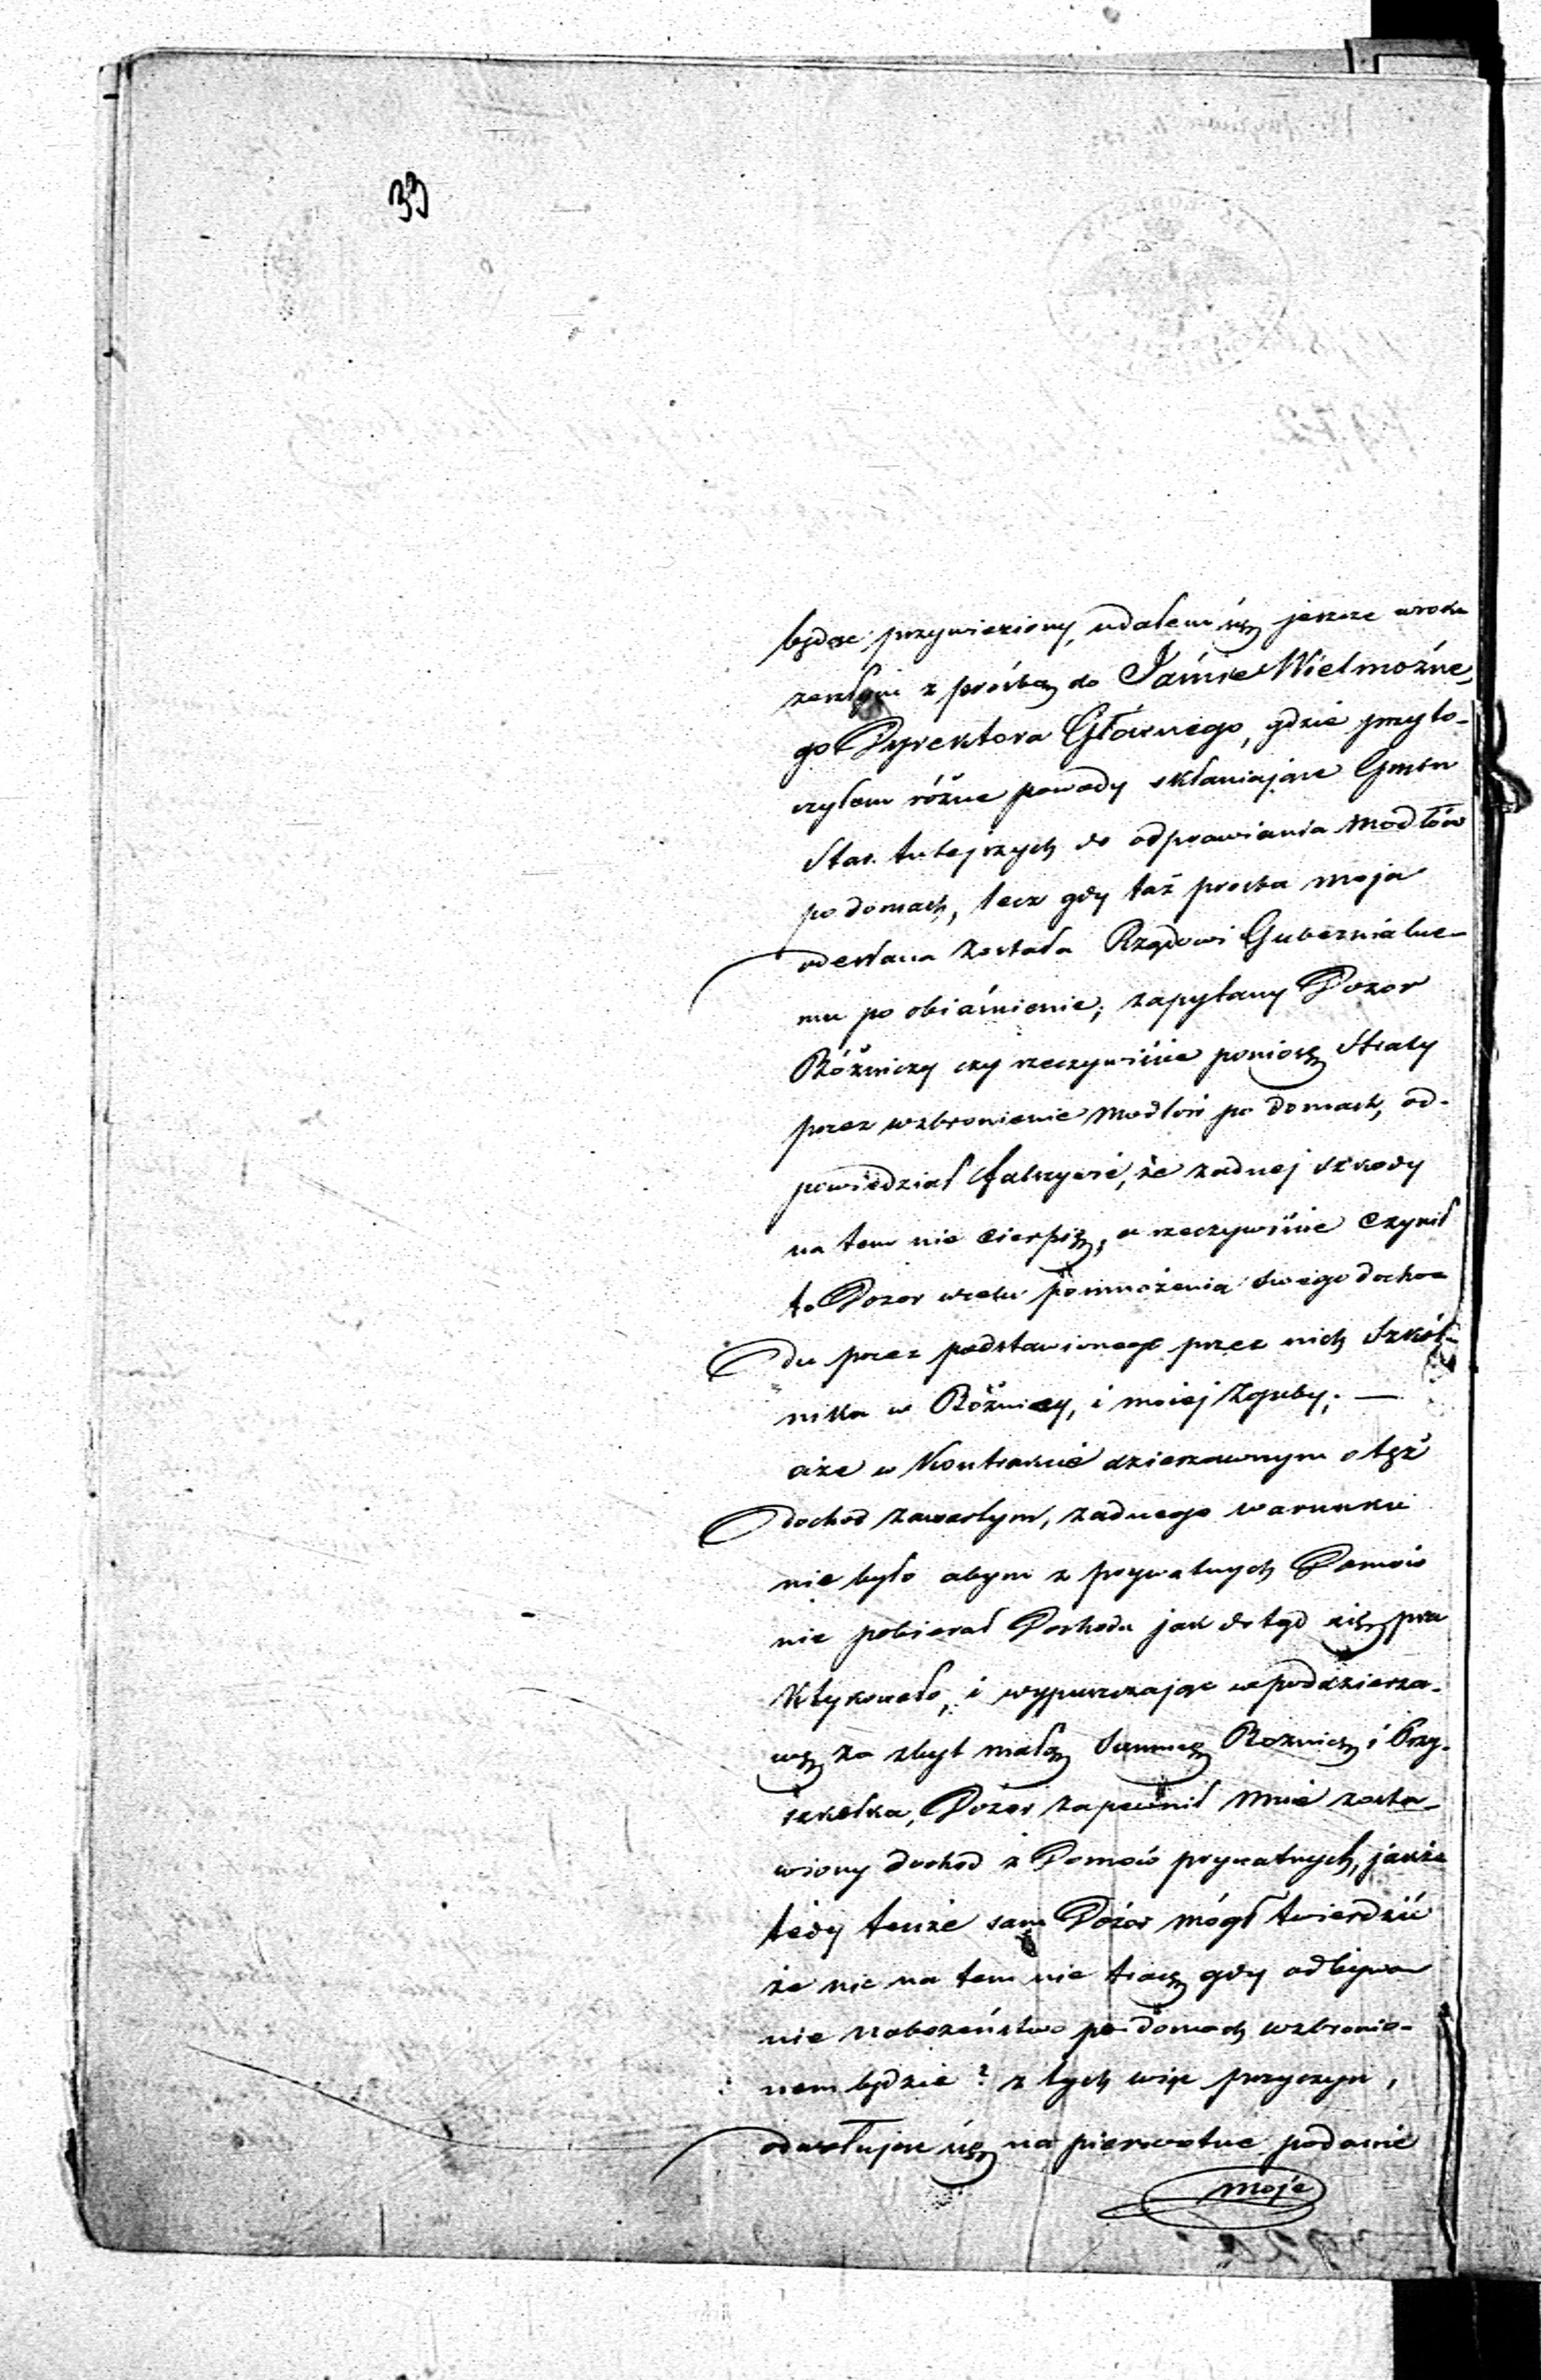 33
będąc przywieziony, udałem się jeszcze w roku
zeszłym z prośbą do Jaśnie Wielmożne,
go Dyrektora Głównego, gdzie przyto-
czyłem różne powody skłaniające Gminę
Star. tutejszych do odprawiania modłów
po domach, lecz gdy taż prośba moja
odesłana została Rządowi Gubernialne-
mu po obiaśnienie, zapytany Dozor
Bóżniczy czy rzeczywiście poniosą straty
przez wzbronienie modłów po domach, od-
powiedział fałszywie, że żadnej szkody
na tem nie cierpią, a rzeczywiście czynił
to Dozor w celu pomnożenia swego docho-
du przez podstawionego przez nich Szkól-
nika w Bóżnicy, i moiej zguby; —
aże w Kontrakcie dzierzawnym o tęż
dochod zawartym, zadnego warunku
nie było abym z prywatnych Domów
nie pobierał Dochodu jak dotąd się pra
ktykowało, i wypuszczając w poddzierza-
wę za zbyt małą summę Bożnicę i Przy-
szkołka, Dozor zapewnił mnie zosta-
wiony dochod z Domów prywatnych, jakże
tedy tenże sam Dozór mógł twierdzić
że nic na tem nie tracą gdy odbywa-
nie nabożeństwa po domach wzbronio-
nem będzie? z tych więc przyczyn,
odwołując się na pierwotne podanie
moje